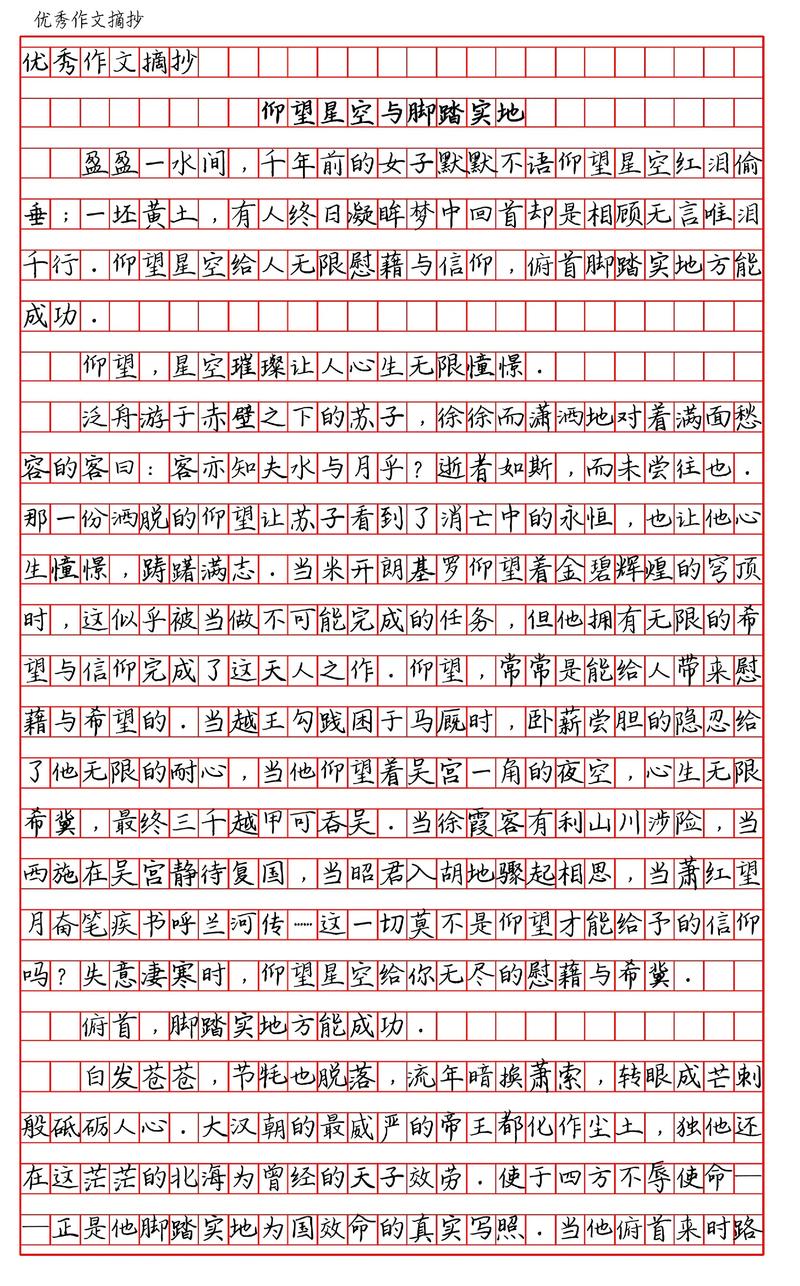 优秀作文摘抄
优秀作文摘抄
仰望星空与脚踏实地
盈盈一水间，千年前的女子默默不语仰望星空红泪偷
垂；一坯黄土，有人终日凝眸梦中回首却是相顾无言唯泪
千行．仰望星空给人无限慰藉与信仰，俯首脚踏实地方能
成功．
仰望，星空璀璨让人心生无限憧憬．
泛舟游于赤壁之下的苏子，徐徐而潇洒地对着满面愁
容的客曰：客亦知夫水与月乎？逝者如斯，而未尝往也．
那一份洒脱的仰望让苏子看到了消亡中的永恒，也让他心
生憧憬，踌躇满志．当米开朗基罗仰望着金碧辉煌的穹顶
时，这似乎被当做不可能完成的任务，但他拥有无限的希
望与信仰完成了这天人之作．仰望，常常是能给人带来慰
藉与希望的．当越王勾践困于马厩时，卧薪尝胆的隐忍给
了他无限的耐心，当他仰望着吴宫一角的夜空，心生无限
希冀，最终三千越甲可吞吴．当徐霞客有利山川涉险，当
西施在吴宫静待复国，当昭君入胡地骤起相思，当萧红望
月奋笔疾书呼兰河传……这一切莫不是仰望才能给予的信仰
吗？失意凄寒时，仰望星空给你无尽的慰藉与希冀．
俯首，脚踏实地方能成功．
白发苍苍，节牦也脱落，流年暗换萧索，转眼成芒刺
般砥砺人心．大汉朝的最威严的帝王都化作尘土，独他还
在这茫茫的北海为曾经的天子效劳．使于四方不辱使命—
—正是他脚踏实地为国效命的真实写照．当他俯首来时路